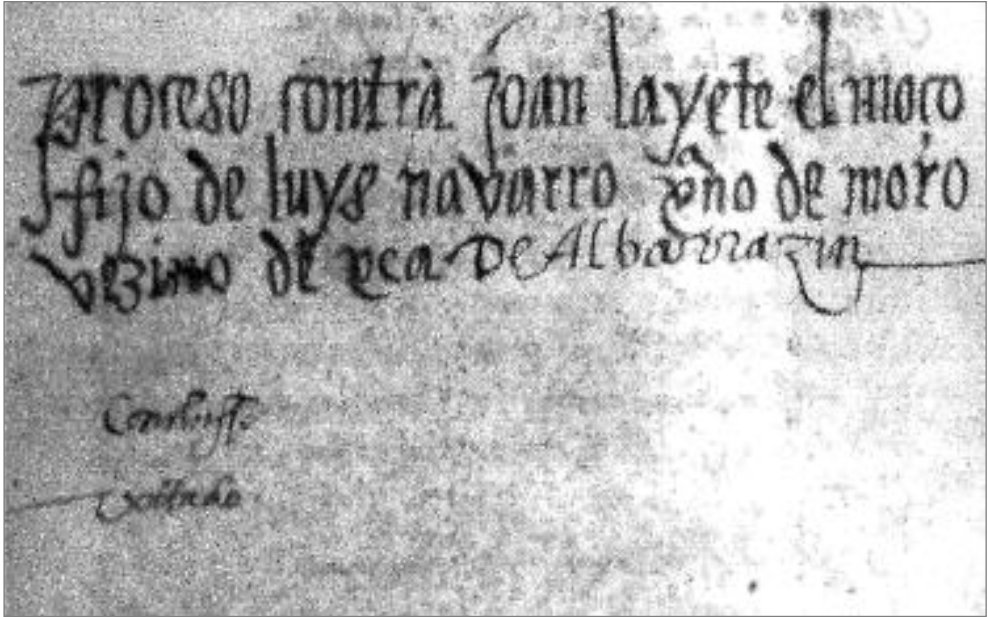 proceso contra joan layete el moço
fijo de luys navarro xño de moro
vezino de xea De Albarrazin
votado